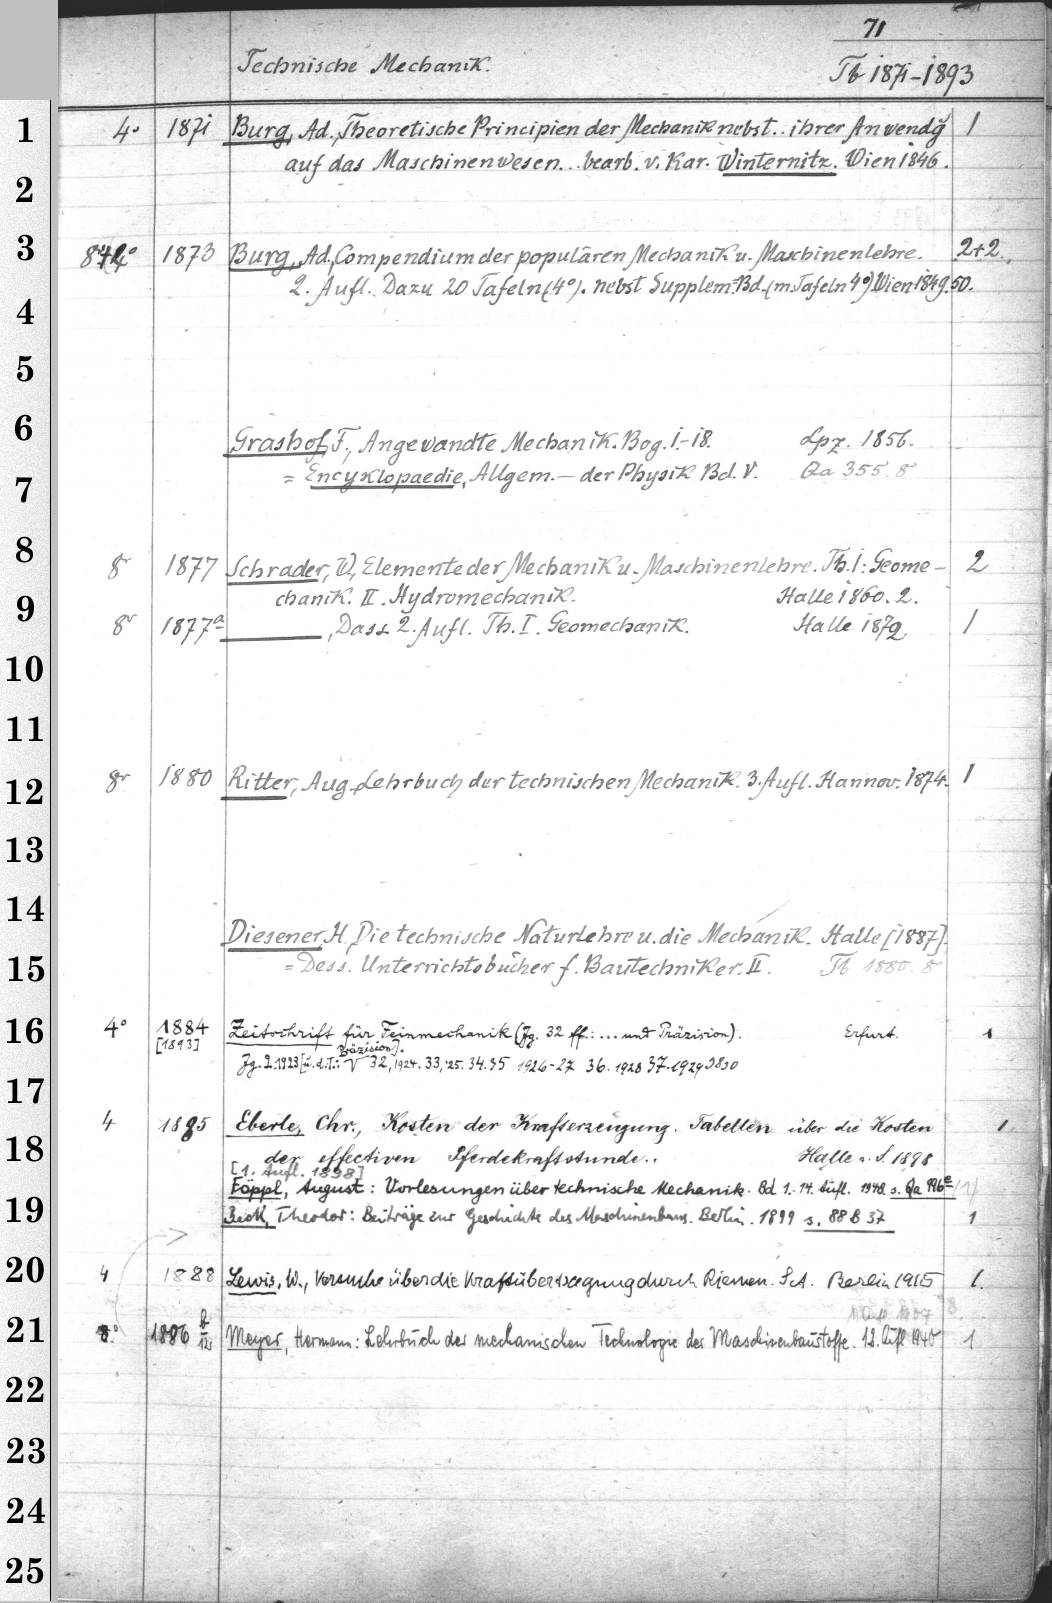 71
Technische Mechanik. Tb 1871-1893
1 4° 1871 Burg, Ad., Theoretische Principien der Mechanik nebst.. ihrer Anwendg 1
auf das Maschinenwesen... bearb. v. Kar. Winternitz. Wien 1846.
2
3 1873 Burg, Ad., Compendium der populären Mechanik u. Maschinenlehre. 2+2.
2. Aufl. Dazu 20 Tafeln (4°). nebst Supplem.-Bd. (m. Tafeln 4°) Wien 1849.50.
4
5
6 Grashof, F., Angewandte Mechanik. Bog. 1-18. Lpz. 1856.
7 = Encyklopaedie, Allgem. — der Physik Bd. V. Qa 355. 8
8 8° 1877 Schrader, W., Elemente der Mechanik u. Maschinenlehre. Th. I: Geome- 2
chanik. II. Hydromechanik. Halle 1860. 2.
9 8° 1877a ———, Dass. 2. Aufl. Th. I. Geomechanik. Halle 1872 1
10
11
12 8° 1880 Ritter, Aug., Lehrbuch der technischen Mechanik. 3. Aufl. Hannov. 1874. 1
13
14
Diesener, H., Die technische Naturlehre u. die Mechanik. Halle [1887].
15 = Dess. Unterrichtsbücher f. Bautechniker. II. Tb 1880. 8
16 4° 1884 Zeitschrift für Feinmechanik (Jg. 32 ff.: ... und Präzision). Erfurt. 1
[1893] Präzision].
Jg. 2.1923 [u.d.T.: V 32, 1924. 33, '25. 34. 35 1926-27 36. 1928 37. 1929 3830
17
4 1885 Eberle, Chr., Kosten der Krafterzeugung. Tabellen über die Kosten 1
18 der effectiven Pferdekraftstunde.. Halle a. S. 1898
[1. Aufl. 1898]
Föppl, August: Vorlesungen über technische Mechanik. Bd 1. 14. Aufl. 1948. s. Qa 996e (1)
19 Beck, Theodor: Beiträge zur Geschichte des Maschinenbaus. Berlin. 1899 s. 88 B 37 1
20 4 1888 Lewis, W., Versuche über die Kraftübertragung durch Riemen. SA. Berlin 1915 1.
21 8° 1886 Meyer, Hermann: Lehrbuch der mechanischen Technologie der Maschinenbaustoffe. 12. Aufl 1940 1
22
23
24
25